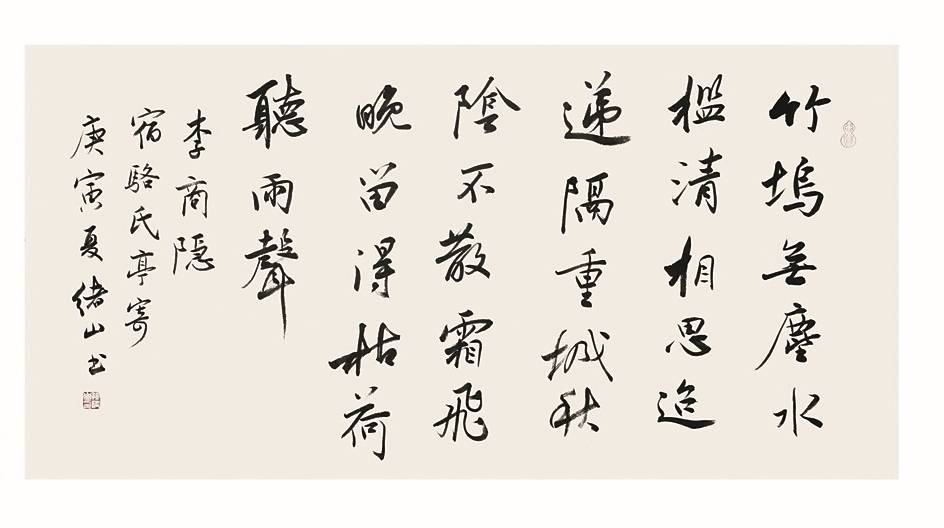 竹塢無塵水
檻清相思迢
遞隔重城秋
陰不散霜飛
晚留得枯荷
聽雨聲
李商隐
宿駱氏亭寄
庚寅夏绪山书